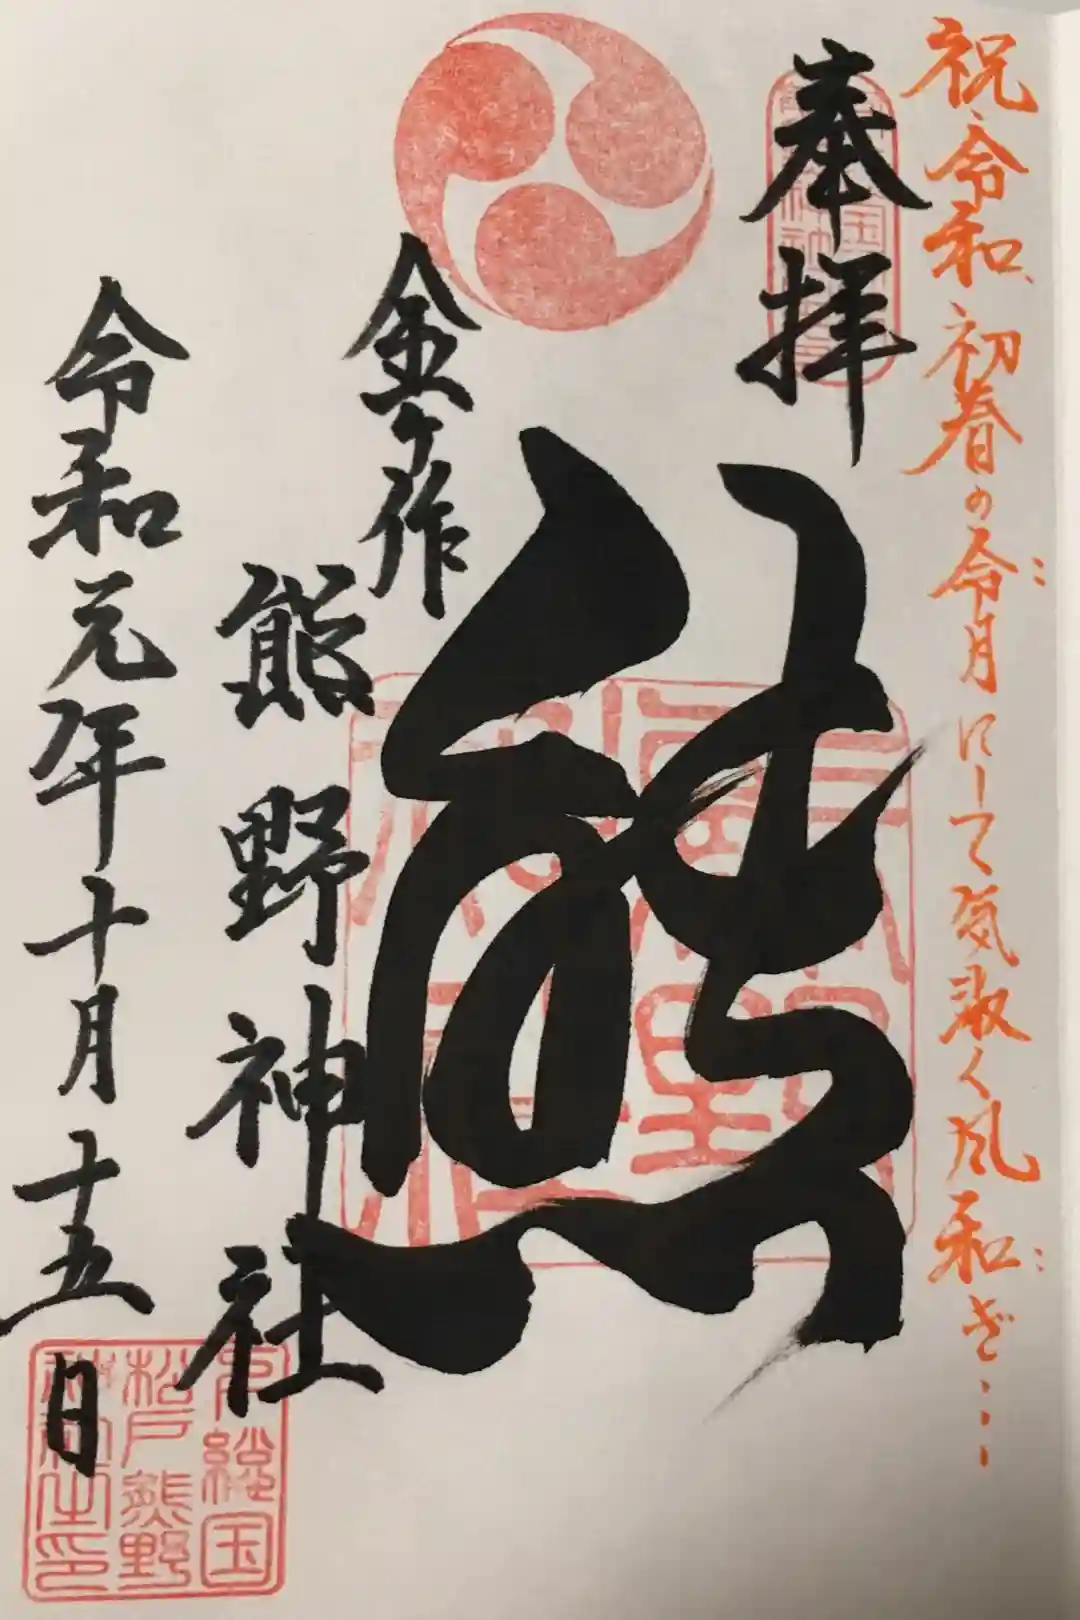 祝 令和、初春の令月にして気淑く風和ぎ…
奉拝
熊
金ヶ作
熊野神社
令和元年十月十五日
熊野神社
下総国
松戸熊野
神社之印